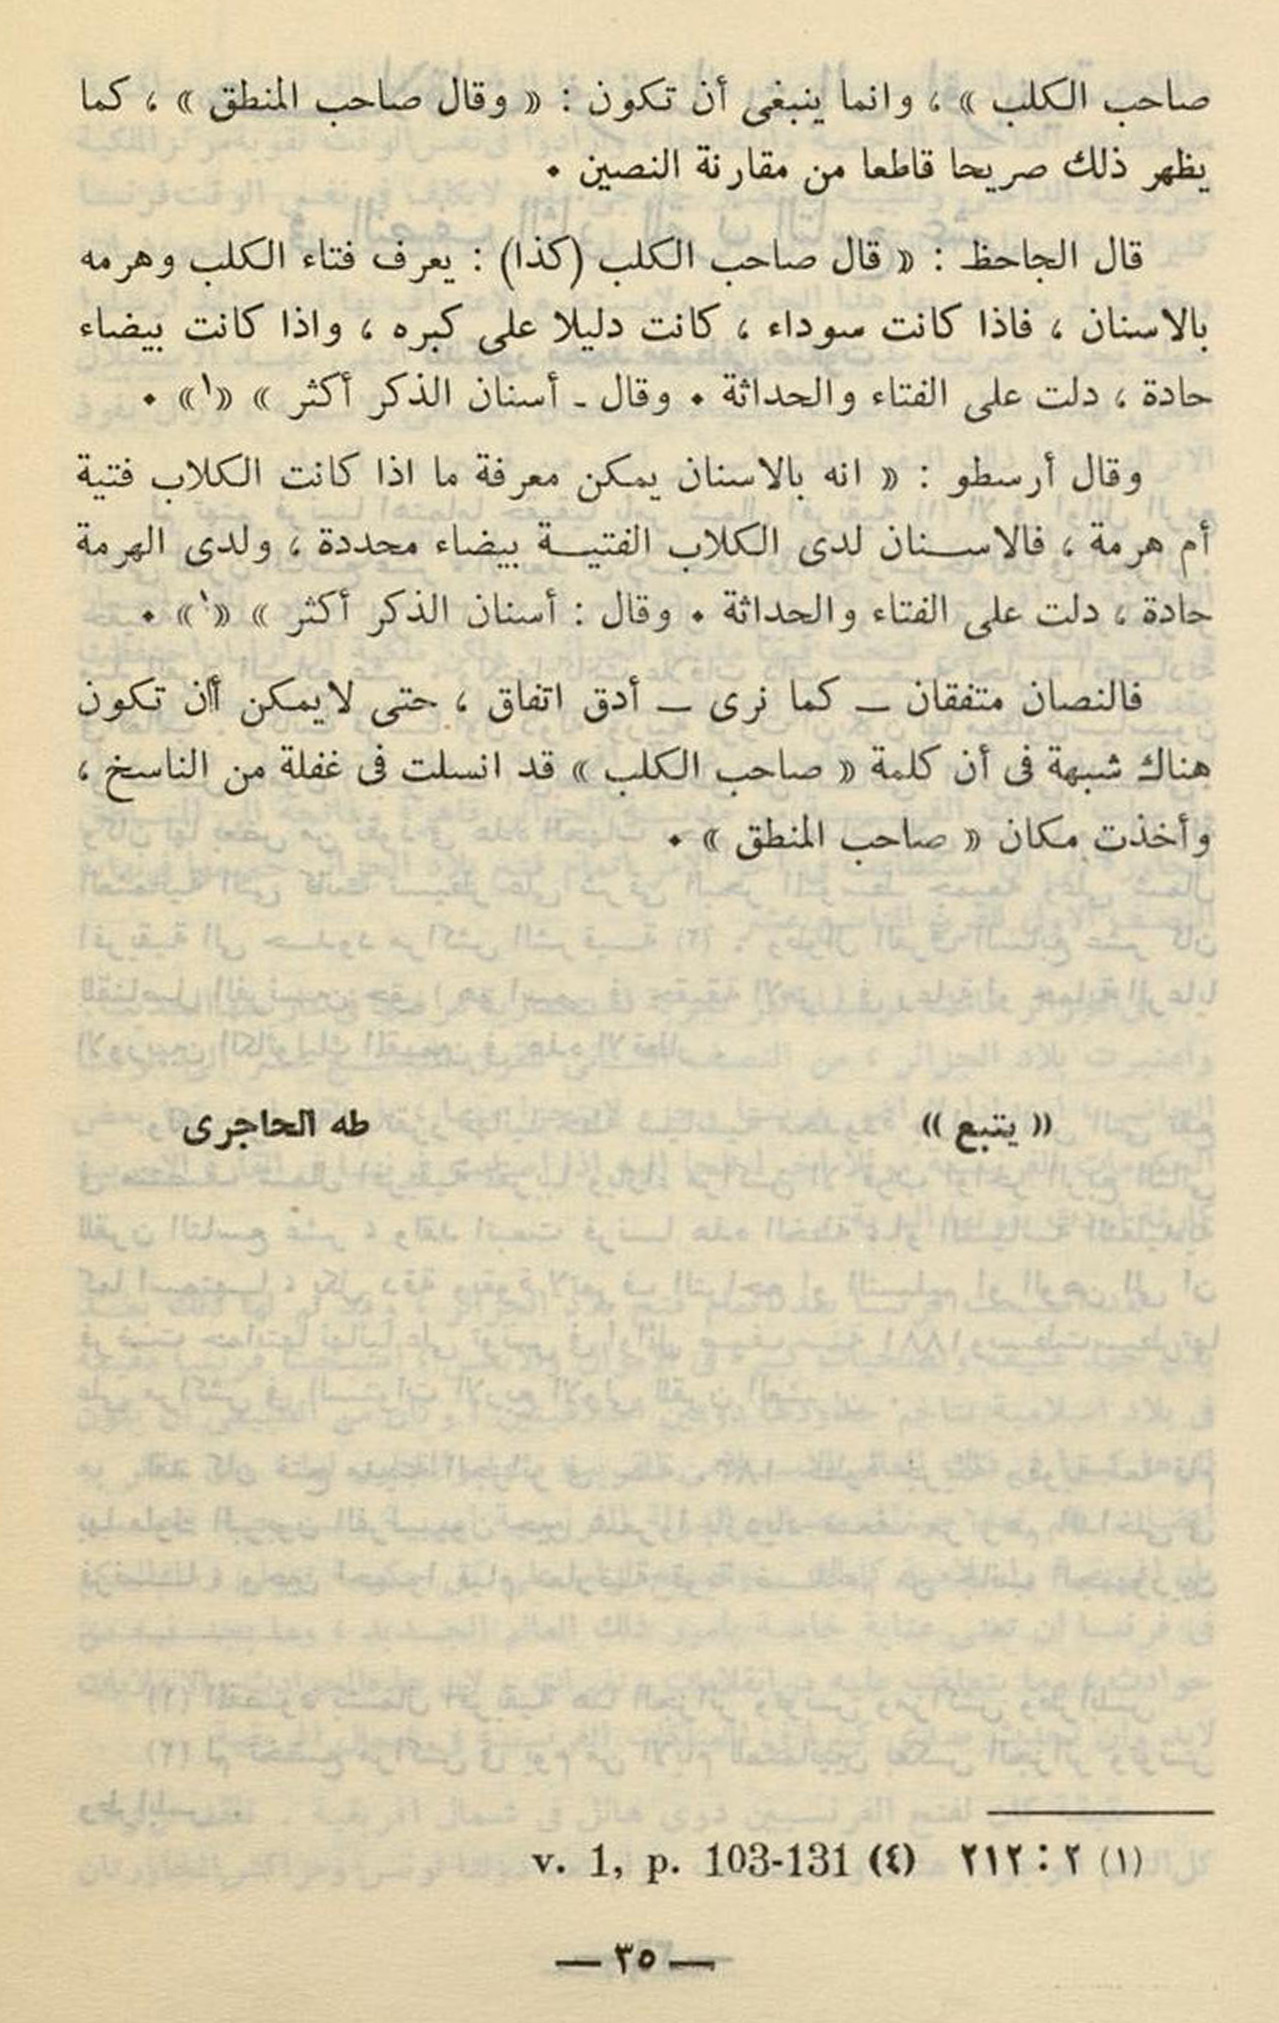 صاحب الكلب » ، وانما ينبغى أن تكون : « وقال صاحب المنطق » ، كما
يظهر ذلك صريحا قاطعا من مقارنة النصين ٠
قال الجاحظ : « قال صاحب الكلب (كذا) : يعرف فتاء الكلب وهرمه
بالاسنان ، فاذا كانت سوداء ، كانت دليلا على كبره ، واذا كانت بيضاء
حادة ، دلت على الفتاء والحداثة ٠ وقال ـ أسنان الذكر أكثر » «١» ٠
وقال أرسطو : « انه بالاسنان يمكن معرفة ما اذا كانت الكلاب فتية
أم هرمة ، فالاسنان لدى الكلاب الفتية بيضاء محددة ، ولدى الهرمة
حادة ، دلت على الفتاء والحداثة ٠ وقال : أسنان الذكر أكثر » «١» ٠
فالنصان متفقان ــ كما نرى ــ أدق اتفاق ، حتى لايمكن أن تكون
هناك شبهة فى أن كلمة « صاحب الكلب » قد انسلت فى غفلة من الناسخ ،
وأخذت مكان « صاحب المنطق » ٠
« يتبع » طه الحاجرى
(١) ٢ : ٢١٢ (٤) v. 1, p. 103-131
— ٣٥ —